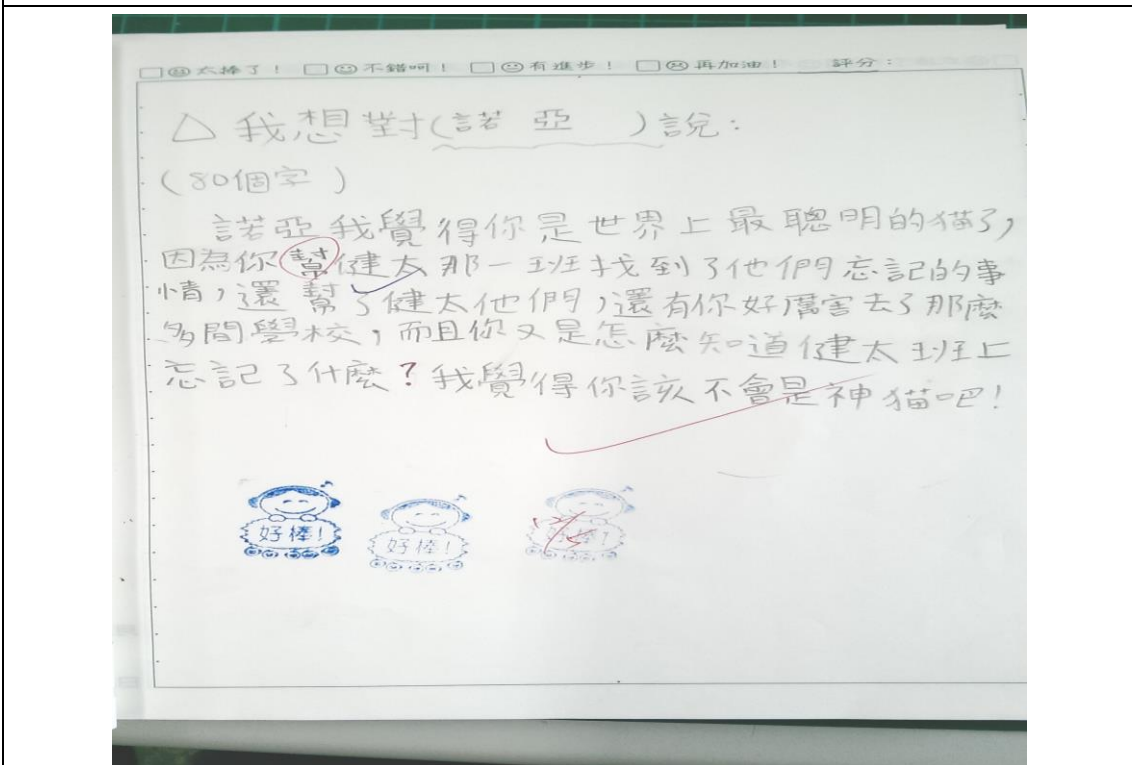 □☹太棒了! □☺不錯呵! □☺有進步! □☹再加油! 評分:
△我想對(諾亞 )說:
(80個字)
諾亞我覺得你是世界上最聰明的猫了,
因為你幫健太那一班找到了他們忘記的事
情,還幫了健太他們,還有你好厲害去了那麼
多間學校,而且你又是怎麼知道健太班上
忘記了什麼?我覺得你該不會是神猫吧!
好棒!
好棒!
好棒!